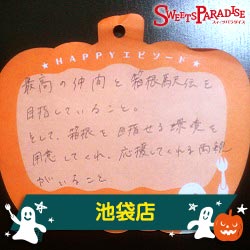 SWEETS PARADISE
スイーツパラダイス
★HAPPYエピソード★
最高の仲間と箱根駅伝を
目指していること。
そして、箱根を目指せる環境を
用意してくれ、応援してくれる両親
がいること
池袋店